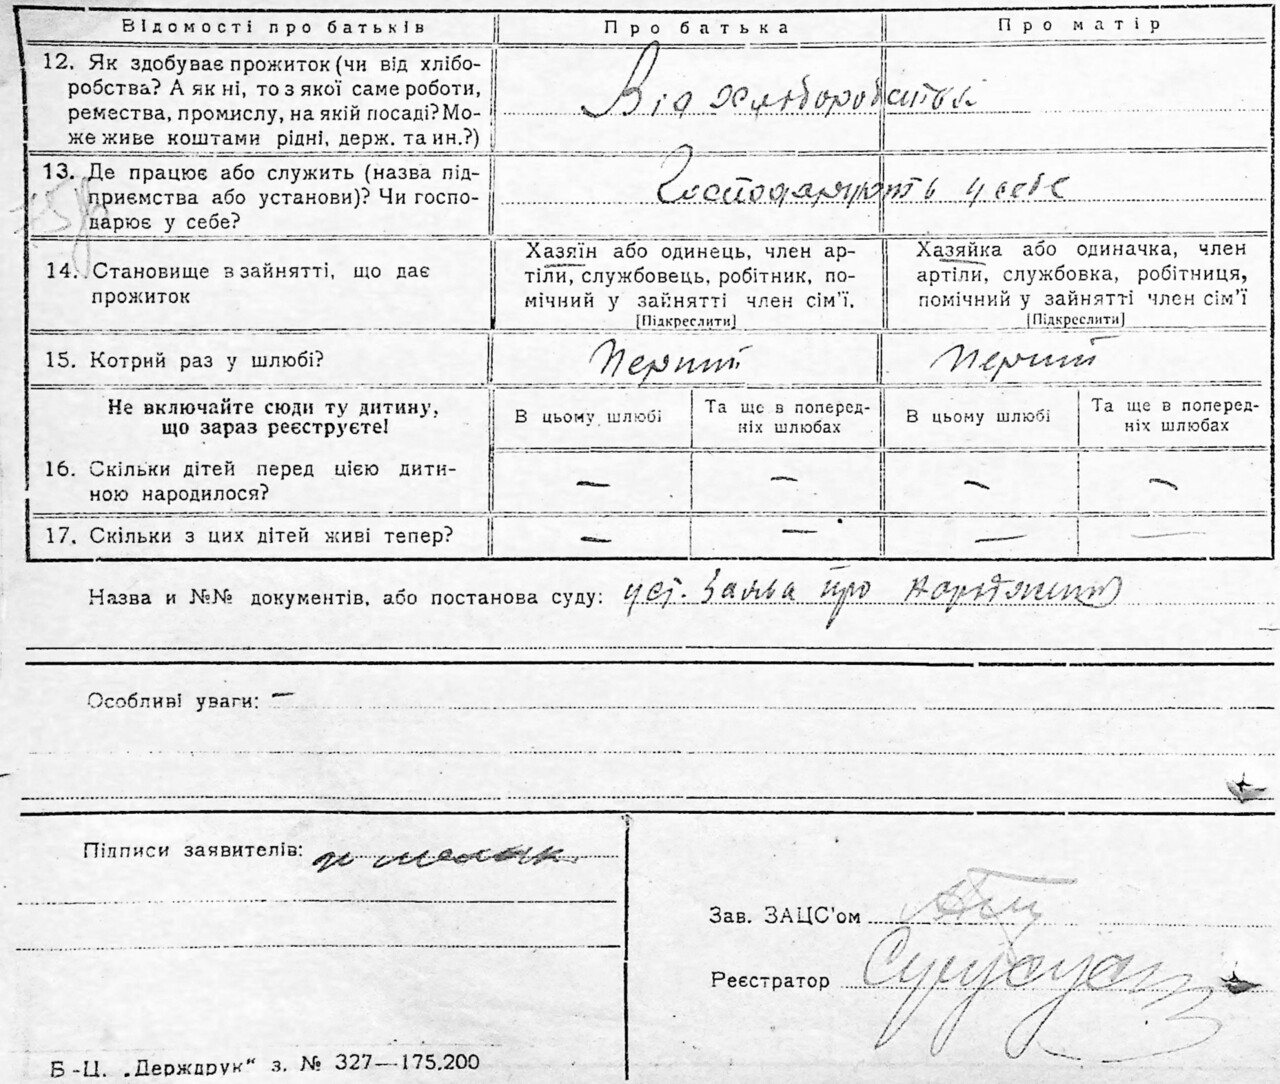 Відомості про батьків Про батька Про матір
12. Як здобуває прожиток (чи від хлібо-
робства? А як ні, то з якої саме роботи,
ремества, промислу, на якій посаді? Мо-
же живе коштами рідні, держ. та ин.?)
Від хліборобства
13. Де працює або служить (назва під-
приємства або установи)? Чи госпо-
дарює у себе?
Господарюють у себе
14. Становище в зайнятті, що дає
прожиток
Хазяїн або одинець, член ар-
тіли, службовець, робітник, по-
мічний у зайнятті член сім'ї.
[Підкреслити]
Хазяйка або одиначка, член
артіли, службовка, робітниця,
помічний у зайнятті член сім'ї
[Підкреслити]
15. Котрий раз у шлюбі? Перший Перший
Не включайте сюди ту дитину,
що зараз реєструєте!
В цьому шлюбі
Та ще в поперед-
ніх шлюбах
В цьому шлюбі
Та ще в поперед-
ніх шлюбах
16. Скільки дітей перед цією дити-
ною народилося?
— — — —
17. Скільки з цих дітей живі тепер? — — — —
Назва и №№ документів, або постанова суду: уст. заява про
Особливі уваги: —
Підписи заявителів:
Зав. ЗАЦС'ом
Реєстратор
Б-Ц. „Держдрук" з. № 327—175.200